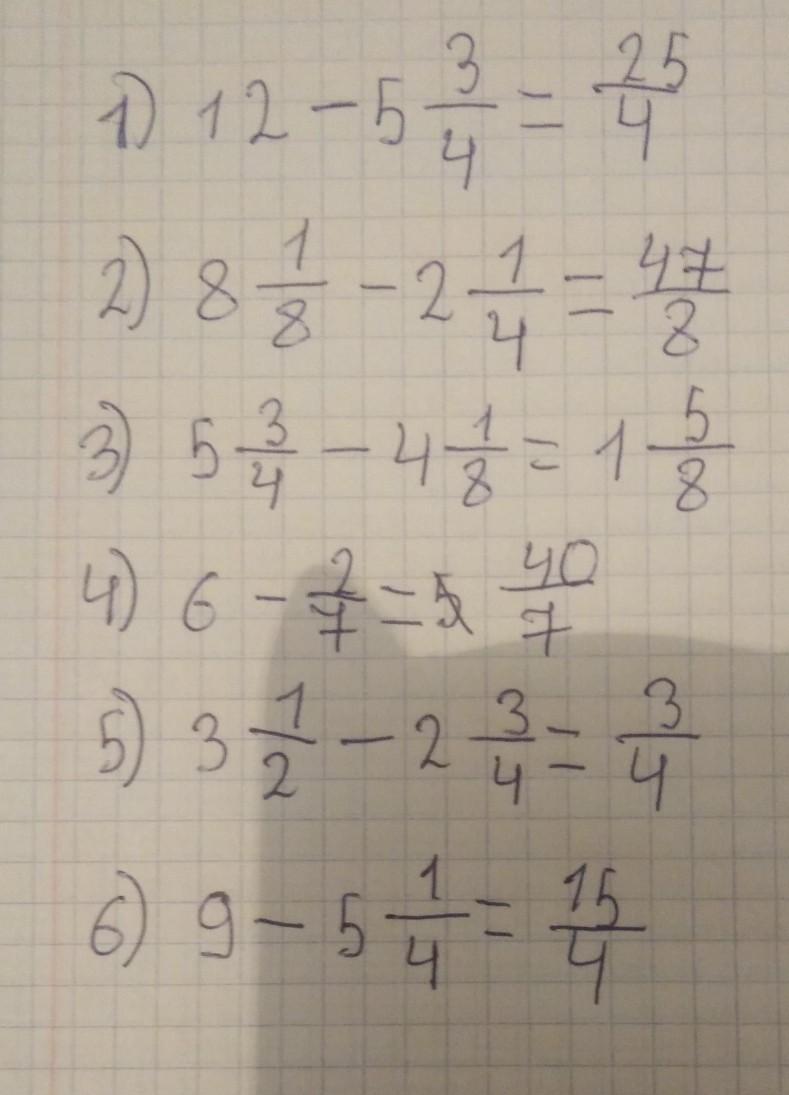 1) 12 - 5 3/4 = 25/4
2) 8 1/8 - 2 1/4 = 47/8
3) 5 3/4 - 4 1/8 = 1 5/8
4) 6 - 2/7 = 40/7
5) 3 1/2 - 2 3/4 = 3/4
6) 9 - 5 1/4 = 15/4